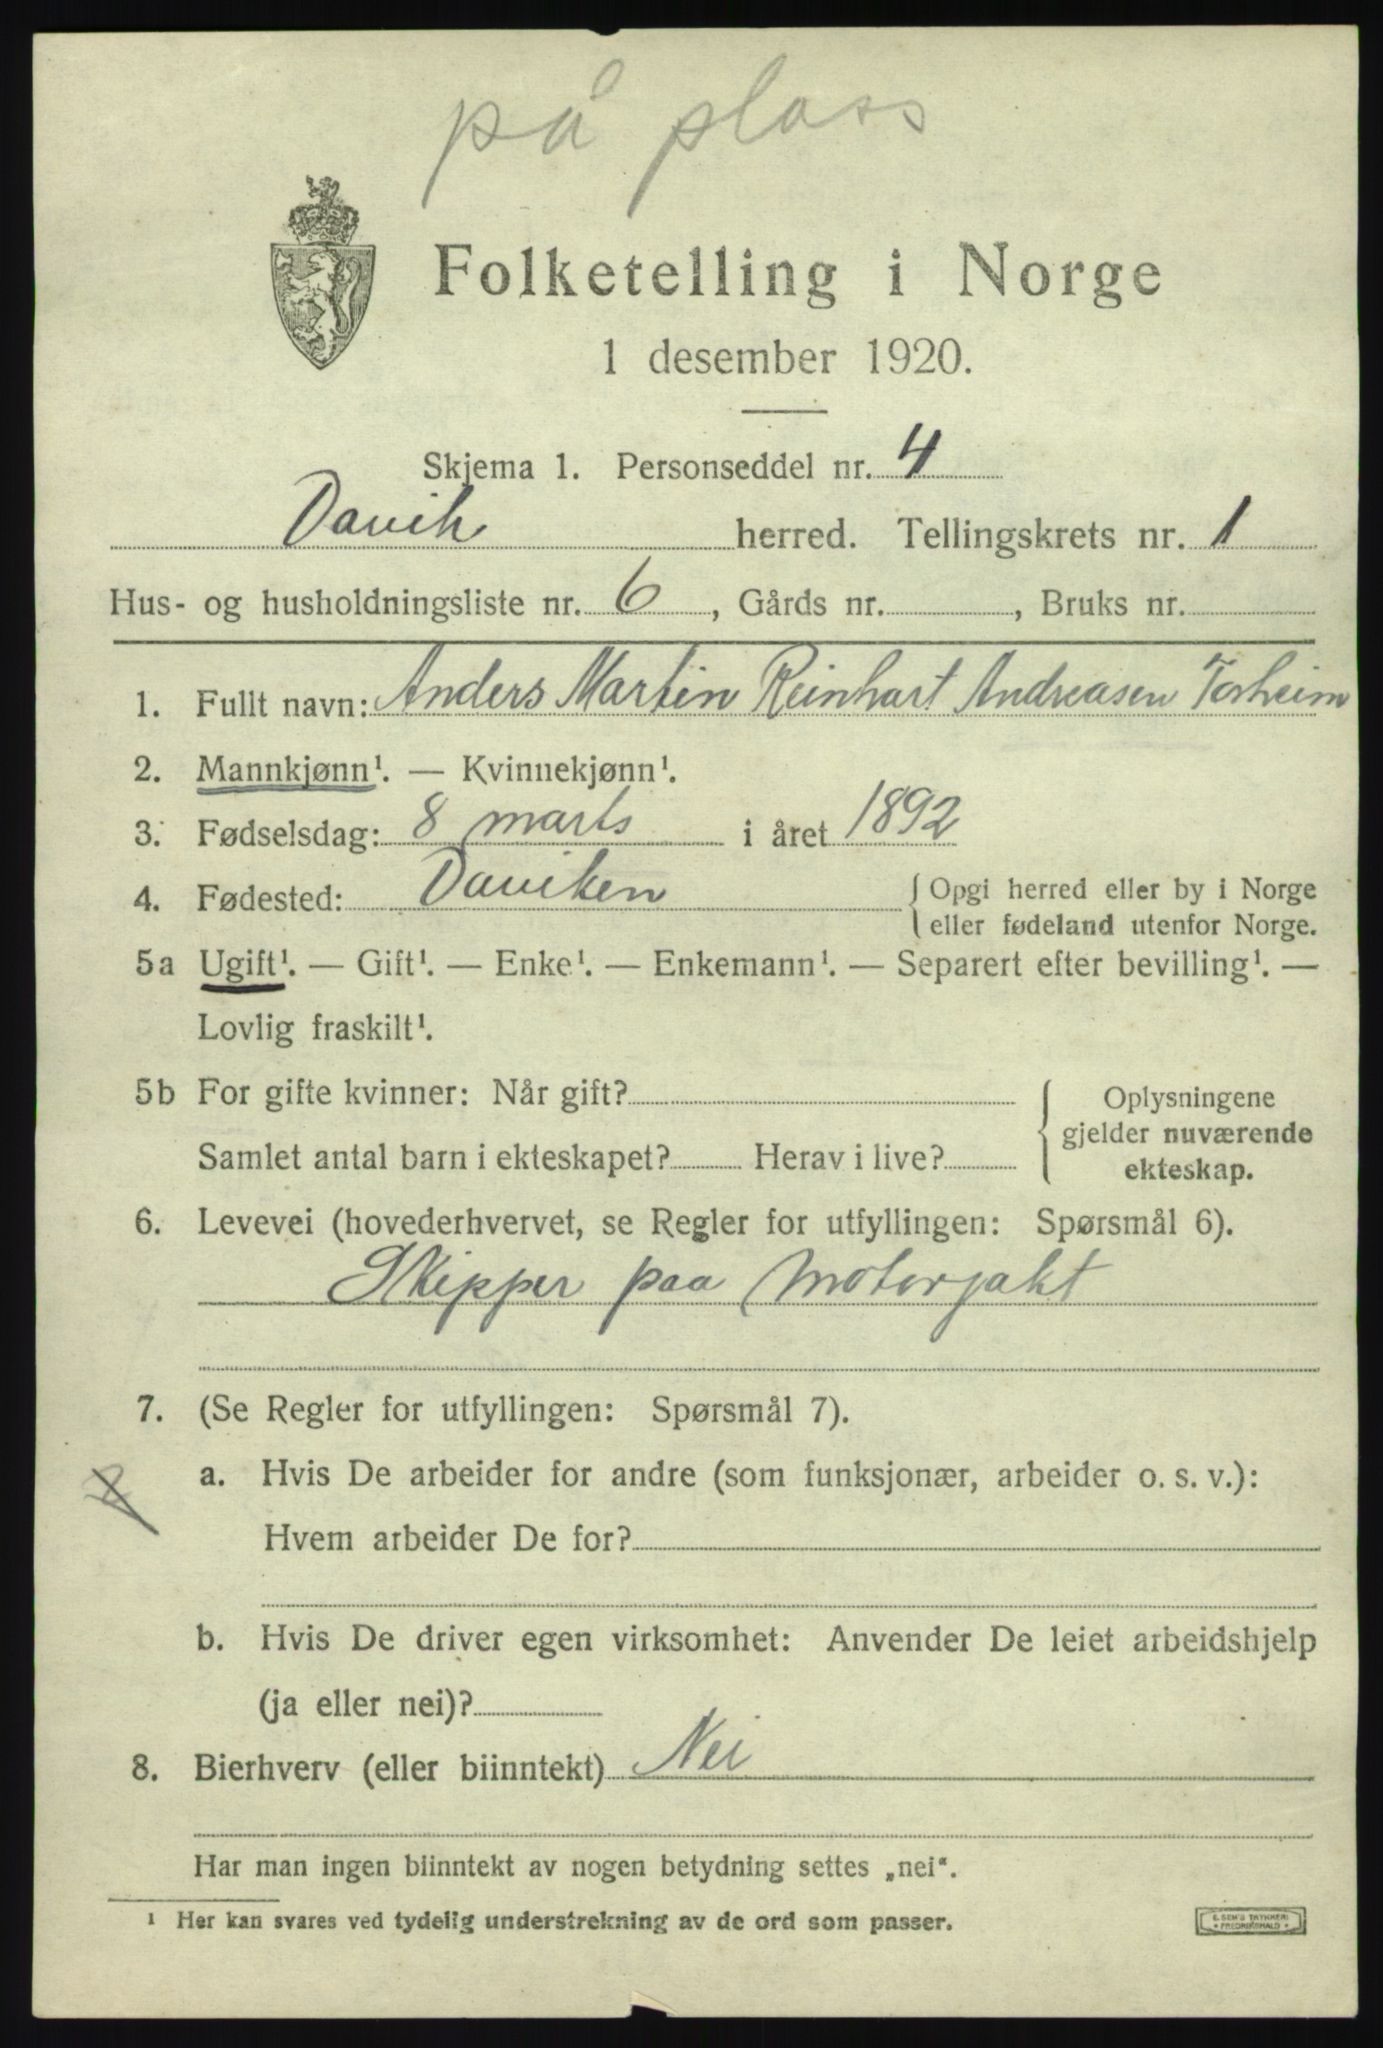 på plass
Folketelling i Norge
1 desember 1920.
Skjema 1. Personseddel nr. 4
Davik herred. Tellingskrets nr. 1
Hus- og husholdningsliste nr. 6, Gårds nr. , Bruks nr.
1. Fullt navn: Anders Martin Reinhart Andreasen Torheim
2. Mannkjønn¹. — Kvinnekjønn¹.
3. Fødselsdag: 8 marts i året 1892
4. Fødested: Daviken { Opgi herred eller by i Norge
eller fødeland utenfor Norge.
5a Ugift¹. — Gift¹. — Enke¹. — Enkemann¹. — Separert efter bevilling¹. —
Lovlig fraskilt¹.
5b For gifte kvinner: Når gift?
Samlet antal barn i ekteskapet? Herav i live?
{ Oplysningene
gjelder nuværende
ekteskap.
6. Levevei (hovederhvervet, se Regler for utfyllingen: Spørsmål 6).
Skipper paa Motorjakt
7. (Se Regler for utfyllingen: Spørsmål 7).
a. Hvis De arbeider for andre (som funksjonær, arbeider o. s. v.):
Hvem arbeider De for?
b. Hvis De driver egen virksomhet: Anvender De leiet arbeidshjelp
(ja eller nei)?
8. Bierhverv (eller biinntekt) Nei
Har man ingen biinntekt av nogen betydning settes „nei“.
¹ Her kan svares ved tydelig understrekning av de ord som passer.
E. SEM'S TRYKKERI
FREDRIKSHALD